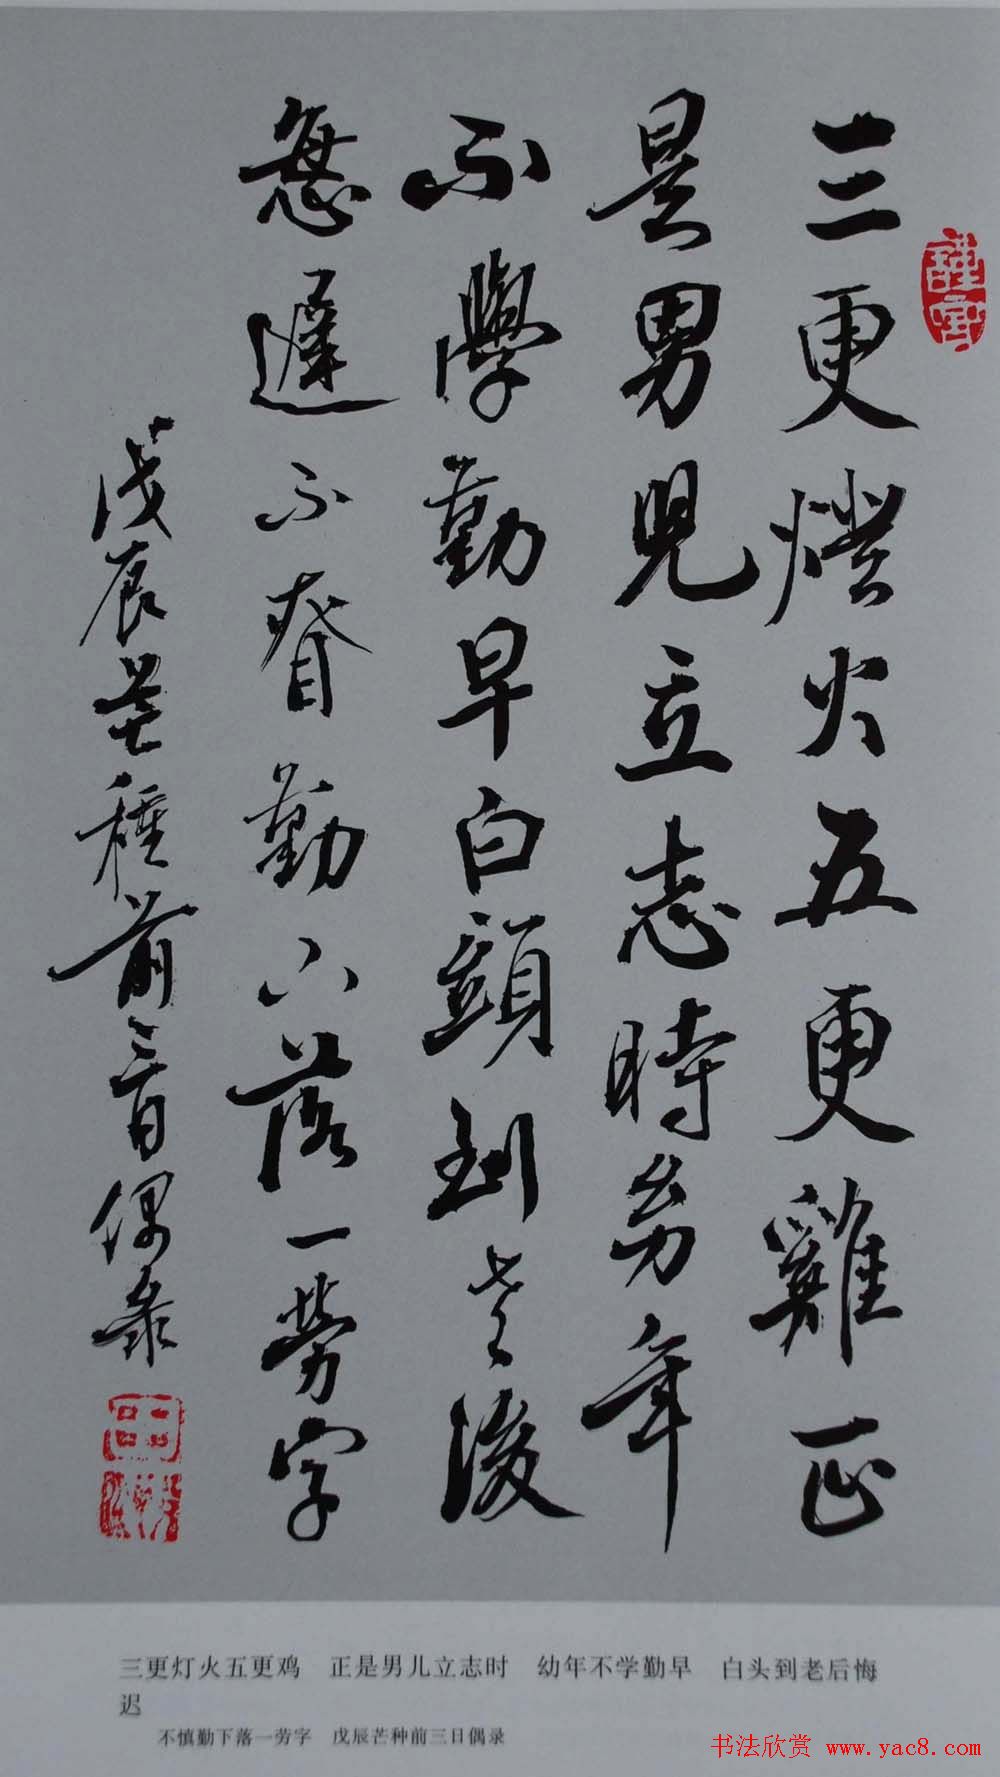 三更燈火五更雞正
是男兒立志時幼年
不學勤早白頭到老後
悔遲不眘勤下落一勞字
戊辰芒種前三日偶錄
三更灯火五更鸡　正是男儿立志时　幼年不学勤早　白头到老后悔
迟
不慎勤下落一劳字　戊辰芒种前三日偶录
书法欣赏 www.yac8.com